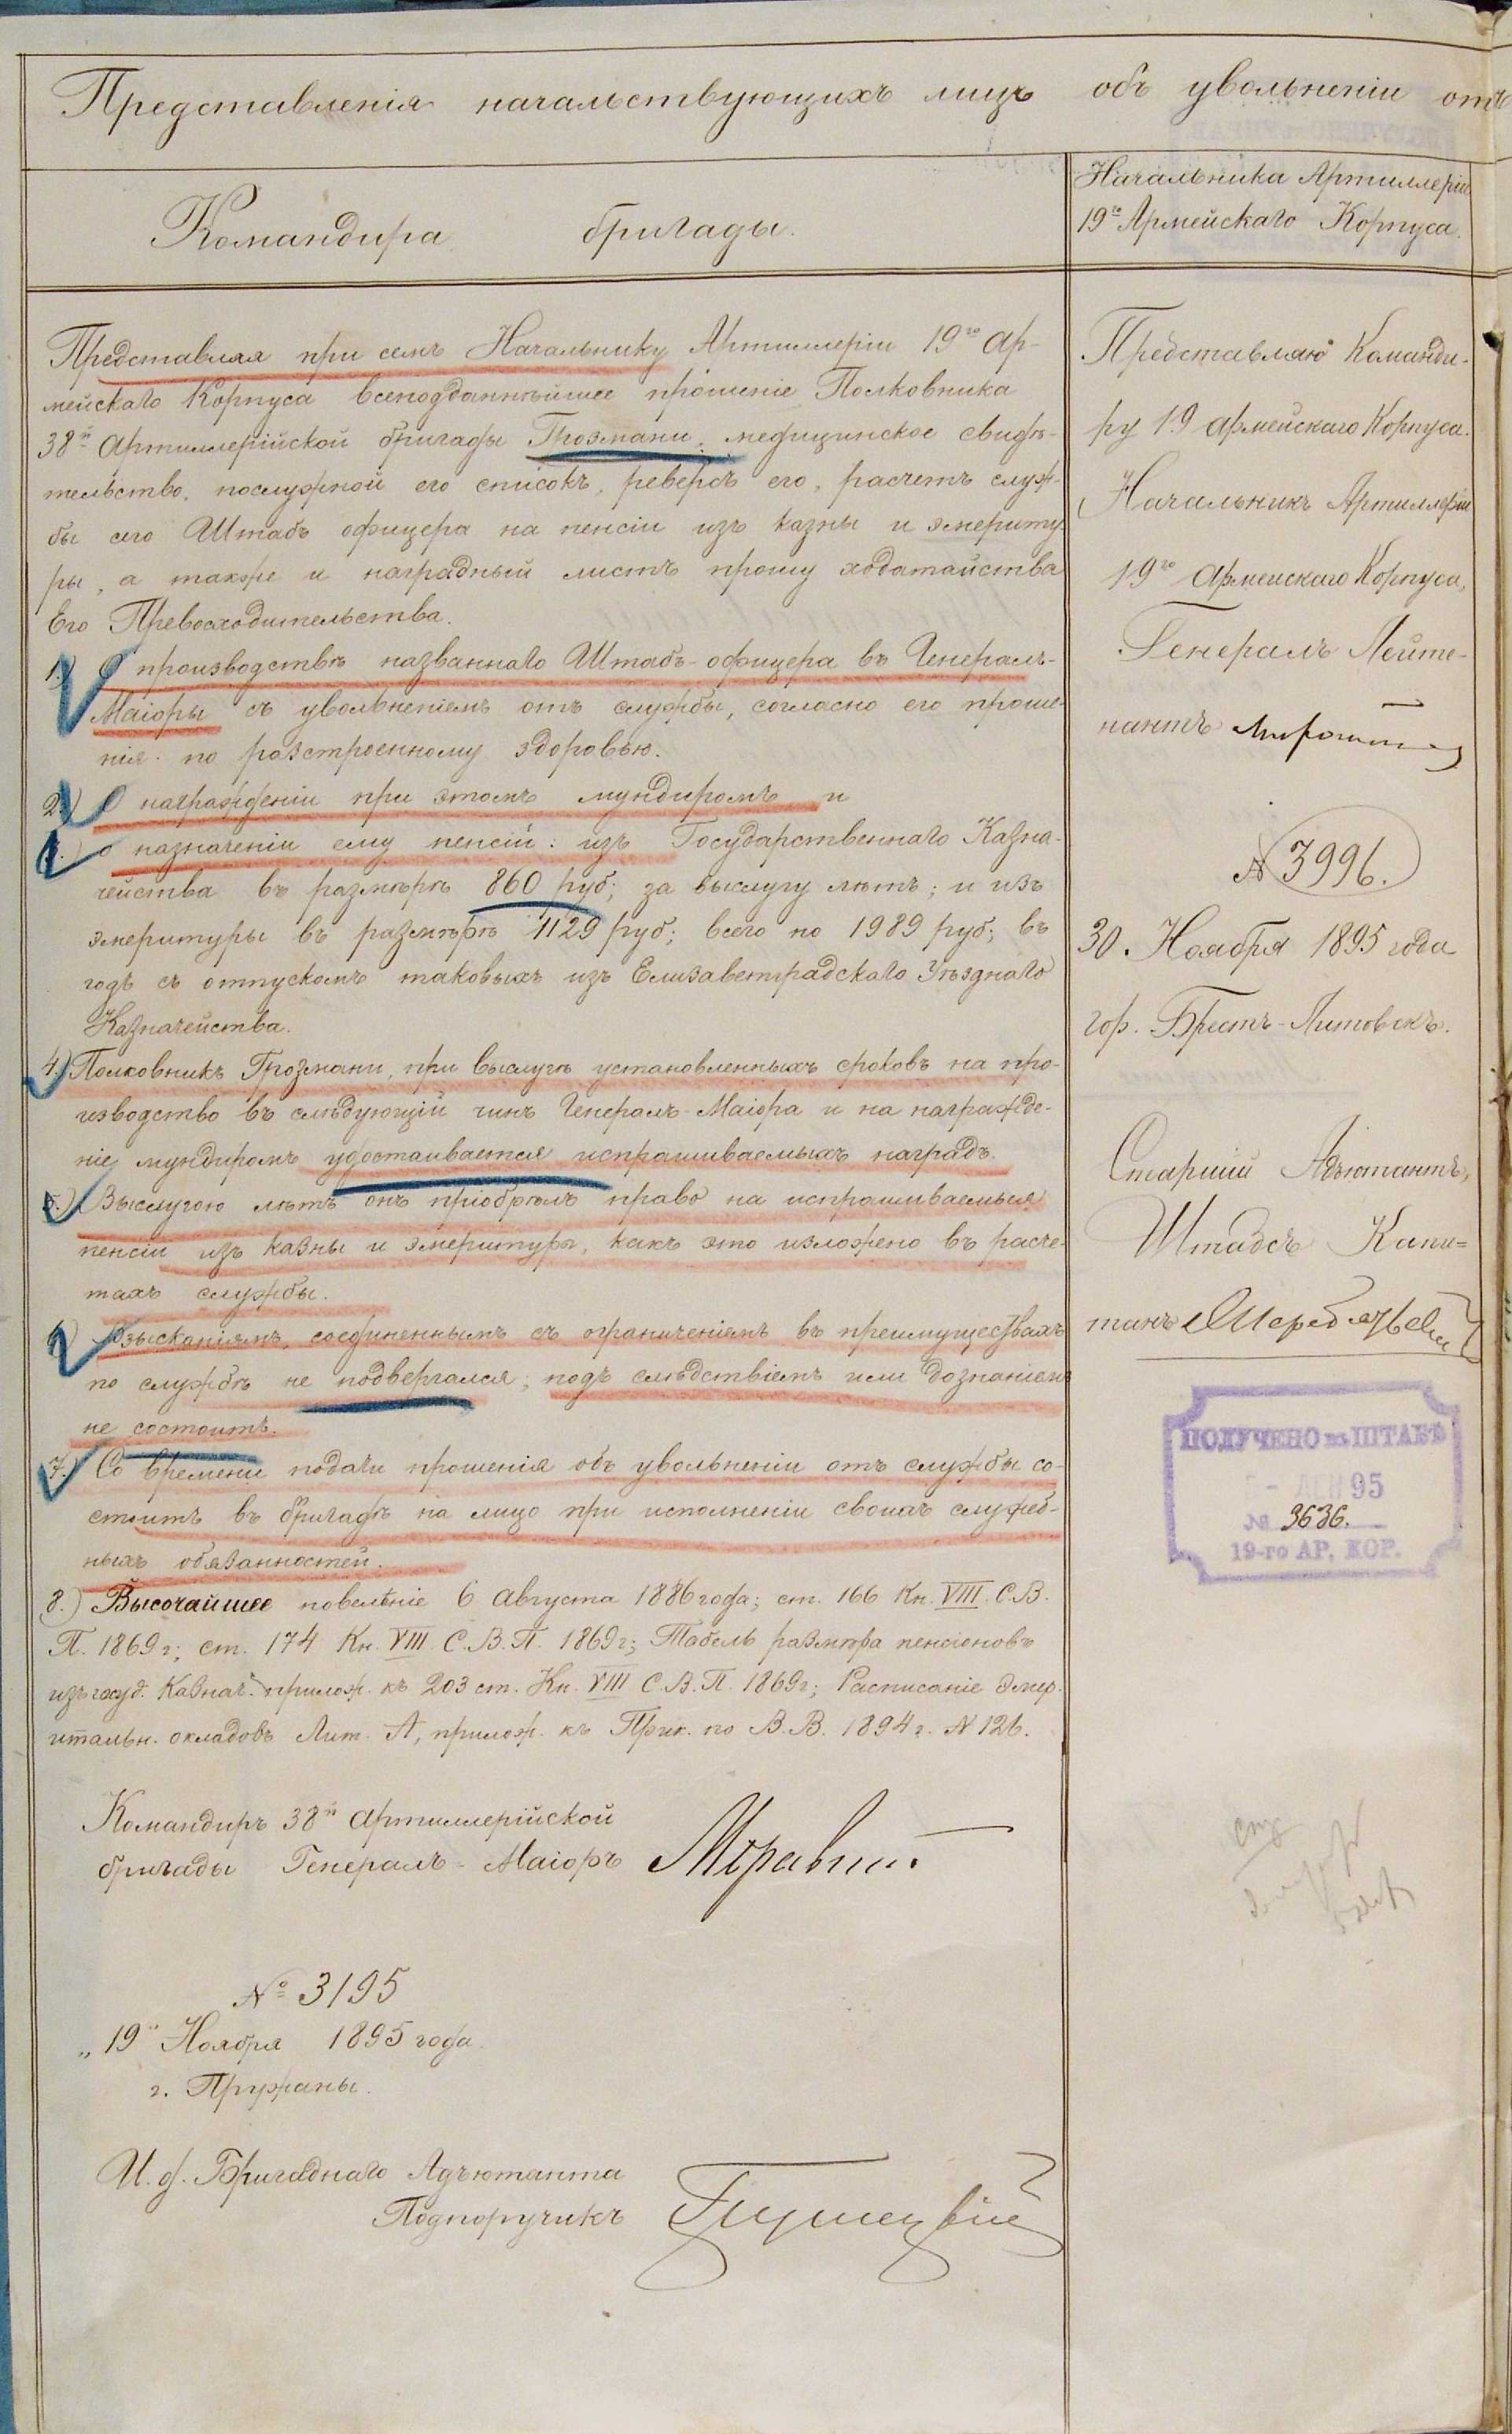 Представленія начальствующихъ лицъ объ увольненіи отъ
Командира бригады.
Представляя при семъ Начальнику Артиллеріи 19го Ар-
мейскаго Корпуса всеподданнѣйшее прошеніе Полковника
38й Артиллерійской бригады Грозмани, медицинское свидѣ-
тельство, послужной его списокъ, реверсъ его, расчетъ служ-
бы сего Штабъ офицера на пенсіи изъ казны и эмериту-
ры, а также и наградный листъ прошу ходатайства
Его Превосходительства.
1.) О производствѣ названнаго Штабъ-офицера въ Генералъ-
Маіоры съ увольненіемъ отъ службы, согласно его проше-
нія по разстроенному здоровью.
2.) О награжденіи при этомъ мундиромъ и
о назначеніи ему пенсій: изъ Государственнаго Казна-
чейства въ размѣрѣ 860 руб; за выслугу лѣтъ; и изъ
эмеритуры въ размѣрѣ 1129 руб; всего по 1989 руб; въ
годъ съ отпускомъ таковыхъ изъ Елизаветградскаго Уѣзднаго
Казначейства.
4.) Полковникъ Грозмани, при выслугѣ установленныхъ сроковъ на про-
изводство въ слѣдующій чинъ Генералъ-Маіора и на награжде-
ніе мундиромъ удостаивается испрашиваемыхъ наградъ.
5.) Выслугою лѣтъ онъ пріобрѣлъ право на испрашиваемыя
пенсіи изъ казны и эмеритуры, какъ это изложено въ расче-
тахъ службы.
6.) Взысканіямъ, соединеннымъ съ ограниченіемъ въ преимуществахъ
по службѣ не подвергался; подъ слѣдствіемъ или дознаніемъ
не состоитъ.
7.) Со времени подачи прошенія объ увольненіи отъ службы со-
стоитъ въ бригадѣ на лицо при исполненіи своихъ служеб-
ныхъ обязанностей.
8.) Высочайшее повелѣніе 6 Августа 1886 года; ст. 166 Кн. VIII. С.В.
П. 1869 г; ст. 174 Кн. VIII С.В.П. 1869 г; Табель размѣра пенсіоновъ
изъ госуд. Казнач. прилож. къ 203 ст. Кн. VIII С.В.П. 1869 г; Расписаніе Эмер.
итальн. окладовъ Лит. А, прилож. къ Прик. по В.В. 1894 г. № 126.
Командиръ 38й Артиллерійской
бригады Генералъ-Маіоръ
№ 3195
„19" Ноября 1895 года.
г. Пружаны.
И. д. Бригаднаго Адъютанта
Подпоручикъ
Начальника Артиллеріи
19го Армейскаго Корпуса.
Представляю Команди-
ру 19 Армейскаго Корпуса.
Начальникъ Артиллеріи
19го Армейскаго Корпуса,
Генералъ Лейте-
нантъ
№ 3996.
30. Ноября 1895 года
гор. Брестъ-Литовскъ.
Старшій Адъютантъ,
Штабсъ Капи=
танъ
ПОЛУЧЕНО въ ШТАБѢ
95
№ 3636.
19-го АР. КОР.